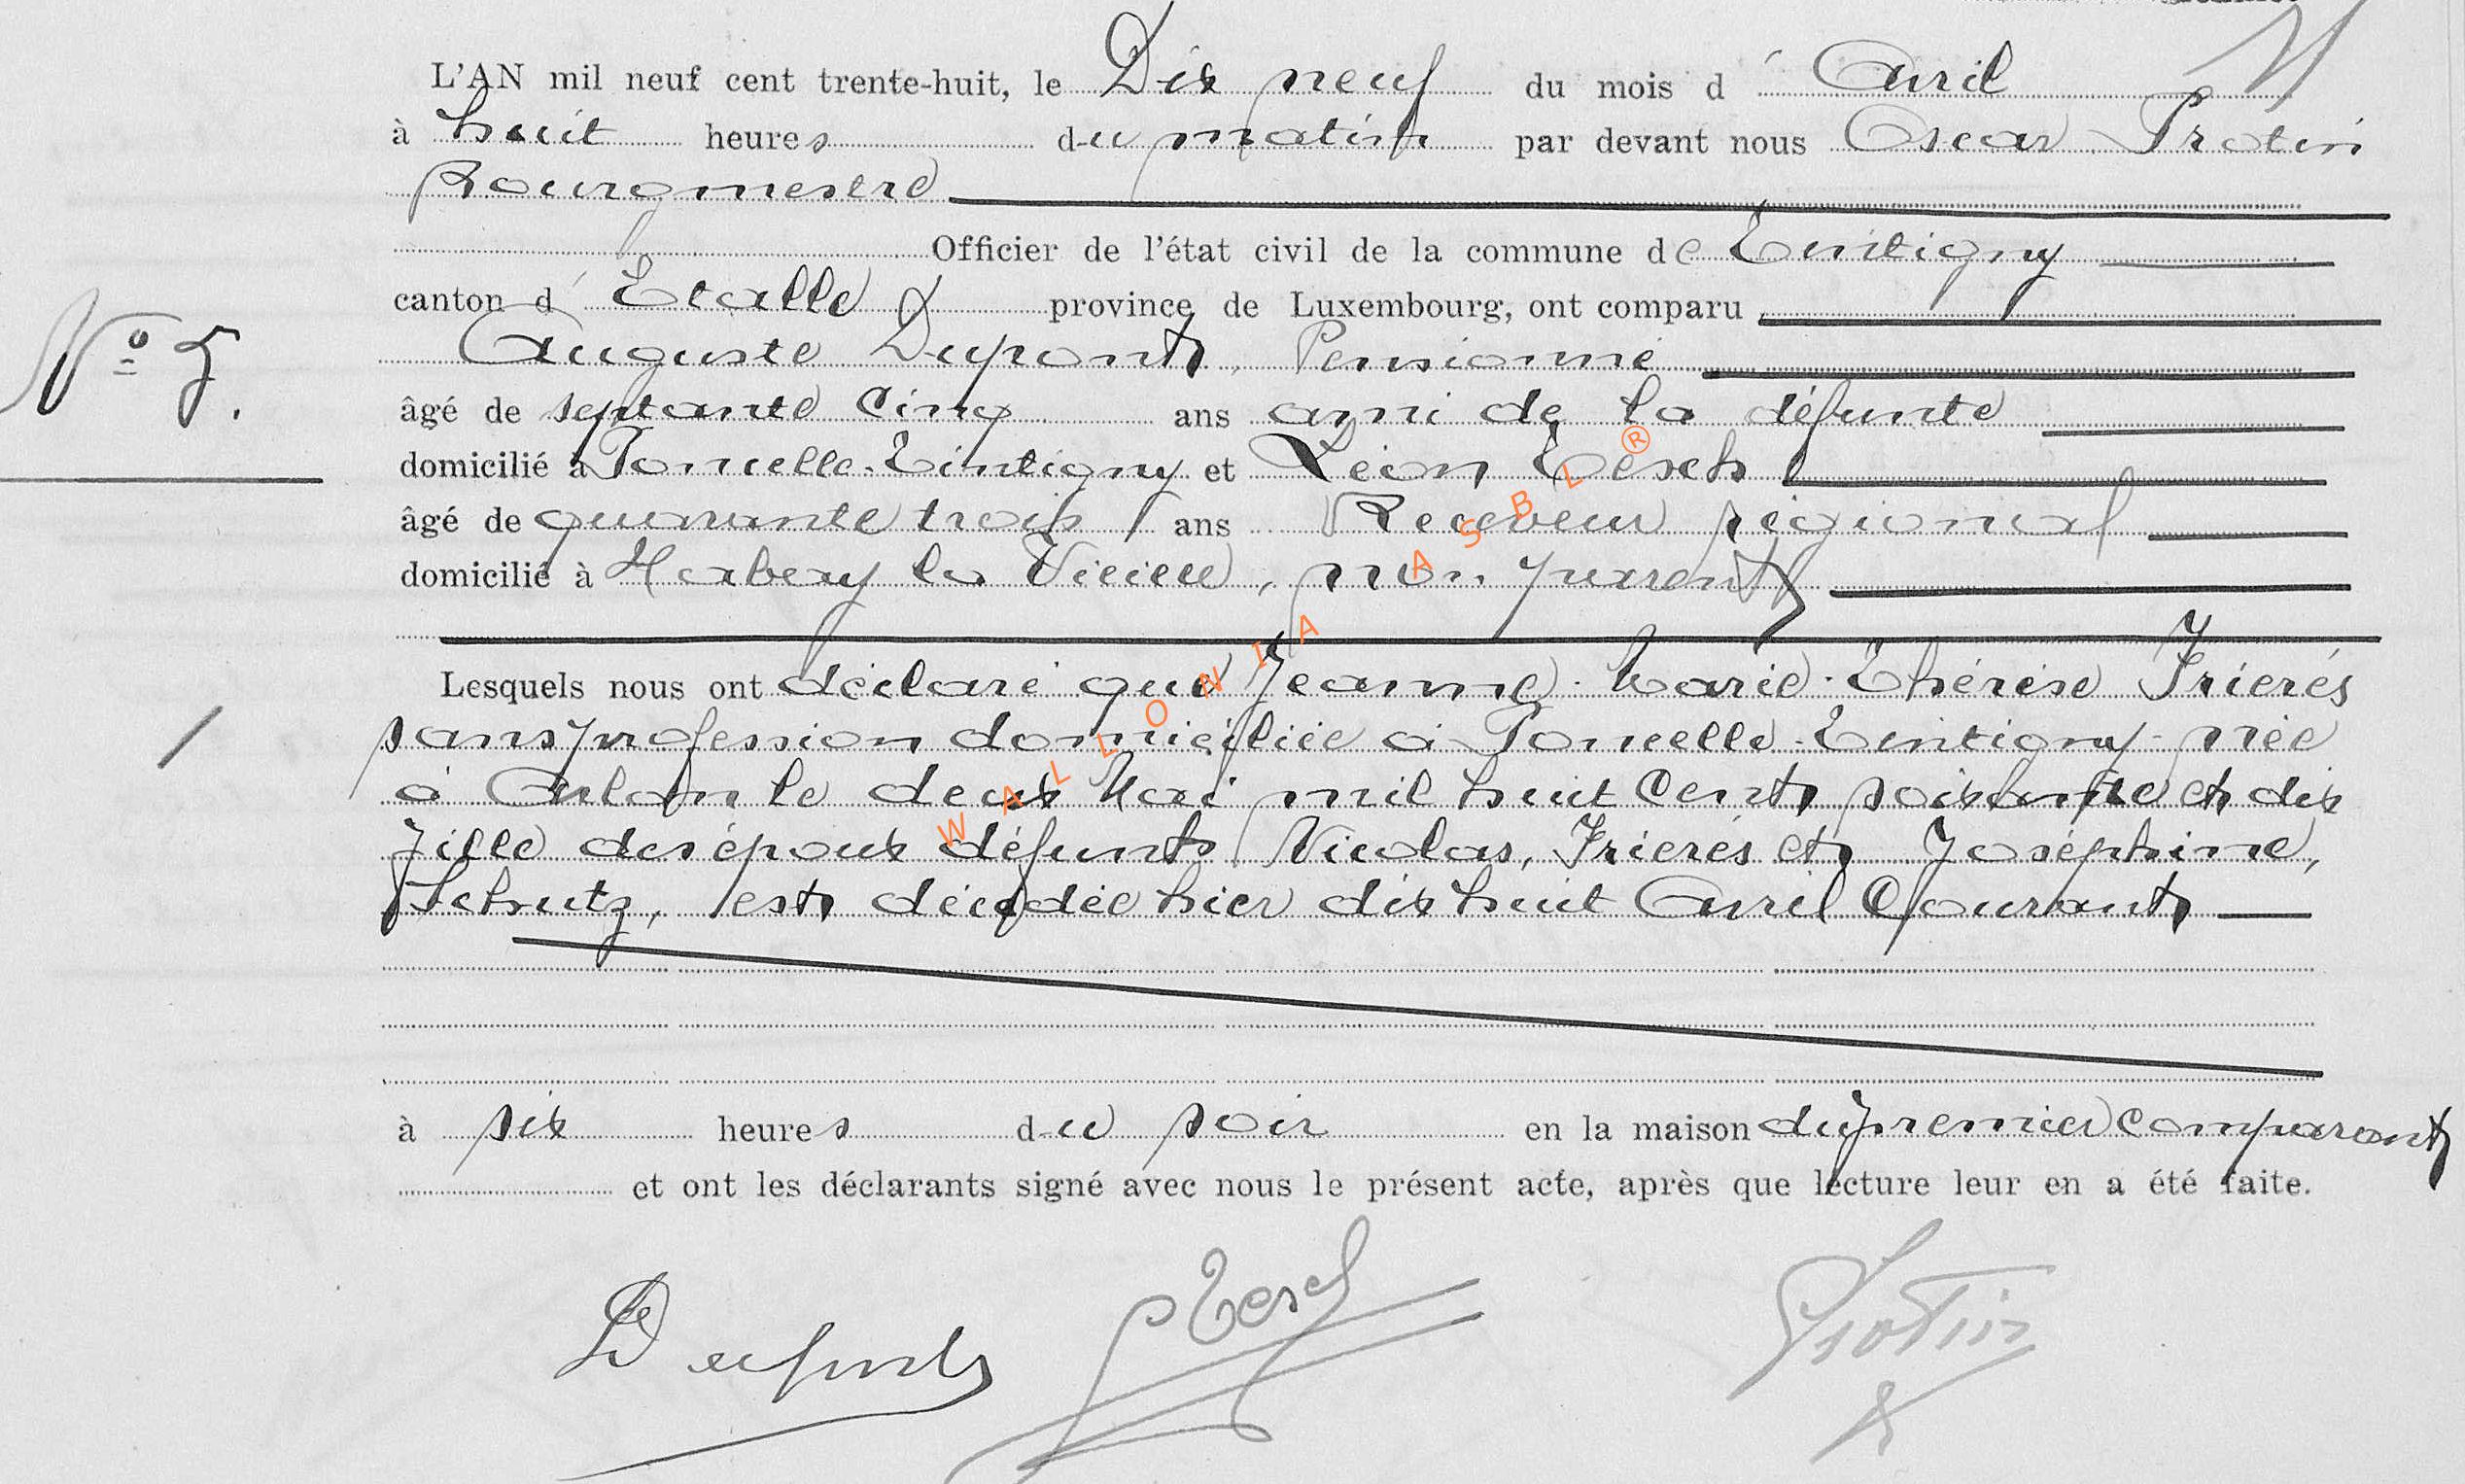 L'AN mil neuf cent trente-huit, le Dix neuf du mois d' Avril
à huit heures du matin par devant nous Oscar Protin
Bourgmestre
Officier de l'état civil de la commune de Tintigny
canton d' Etalle province de Luxembourg, ont comparu
Auguste Dupont, Pensionné
N° 5.
âgé de septante cinq ans ami de la défunte
domicilié à Poncelle-Tintigny et Léon Tesch
âgé de quarante trois ans Receveur régional
domicilié à Habay la Vieille, non parent
Lesquels nous ont déclaré que Jeanne-Marie-Thérèse Frierès
sans profession domiciliée à Poncelle-Tintigny née
à Arlon le deux Mai mil huit cent soixante et dix
fille des époux défunts Nicolas, Frierès et Joséphine,
Schutz, est décédée hier dix huit Avril Courant
à six heures du soir en la maison du premier comparant
et ont les déclarants signé avec nous le présent acte, après que lecture leur en a été faite.
Dupont Tesch Protin
WALLONIA ASBL ®